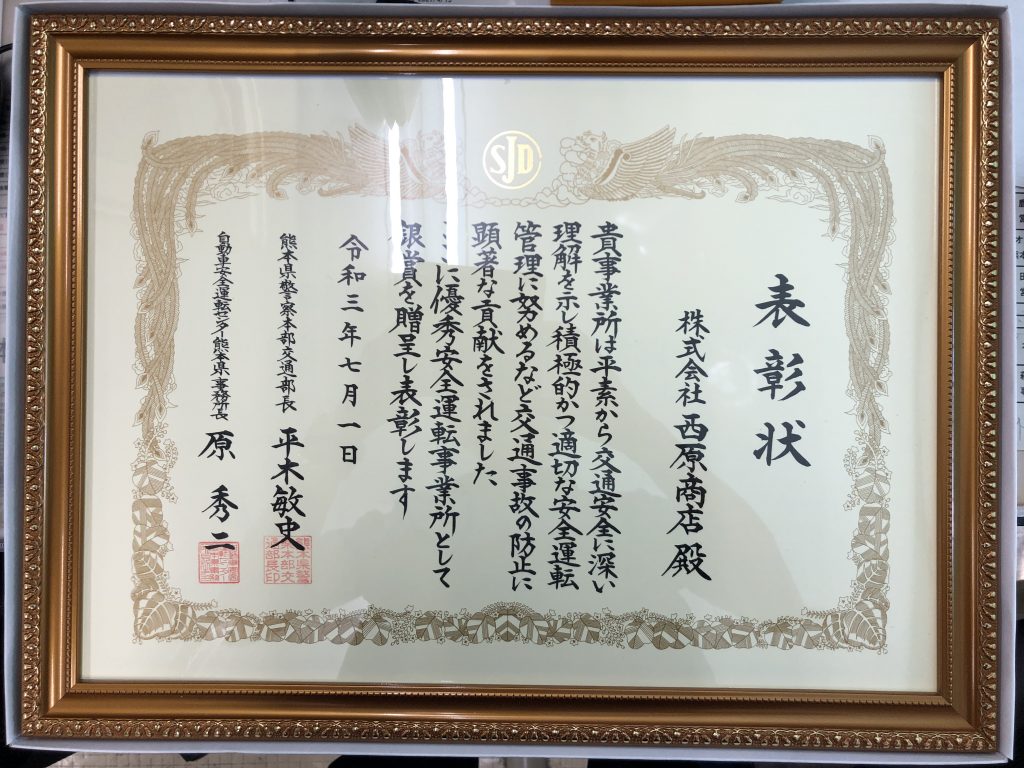 SJD
表彰状
株式会社 西原商店 殿
貴事業所は平素から交通安全に深い
理解を示し積極的かつ適切な安全運転
管理に努めるなど交通事故の防止に
顕著な貢献をされました
ここに優秀安全運転事業所として
銀賞を贈呈し表彰します
令和三年七月一日
熊本県警察本部交通部長 平木敏史
自動車安全運転センター熊本県事務所長 原 秀二
熊本県警
本部交
通部長印